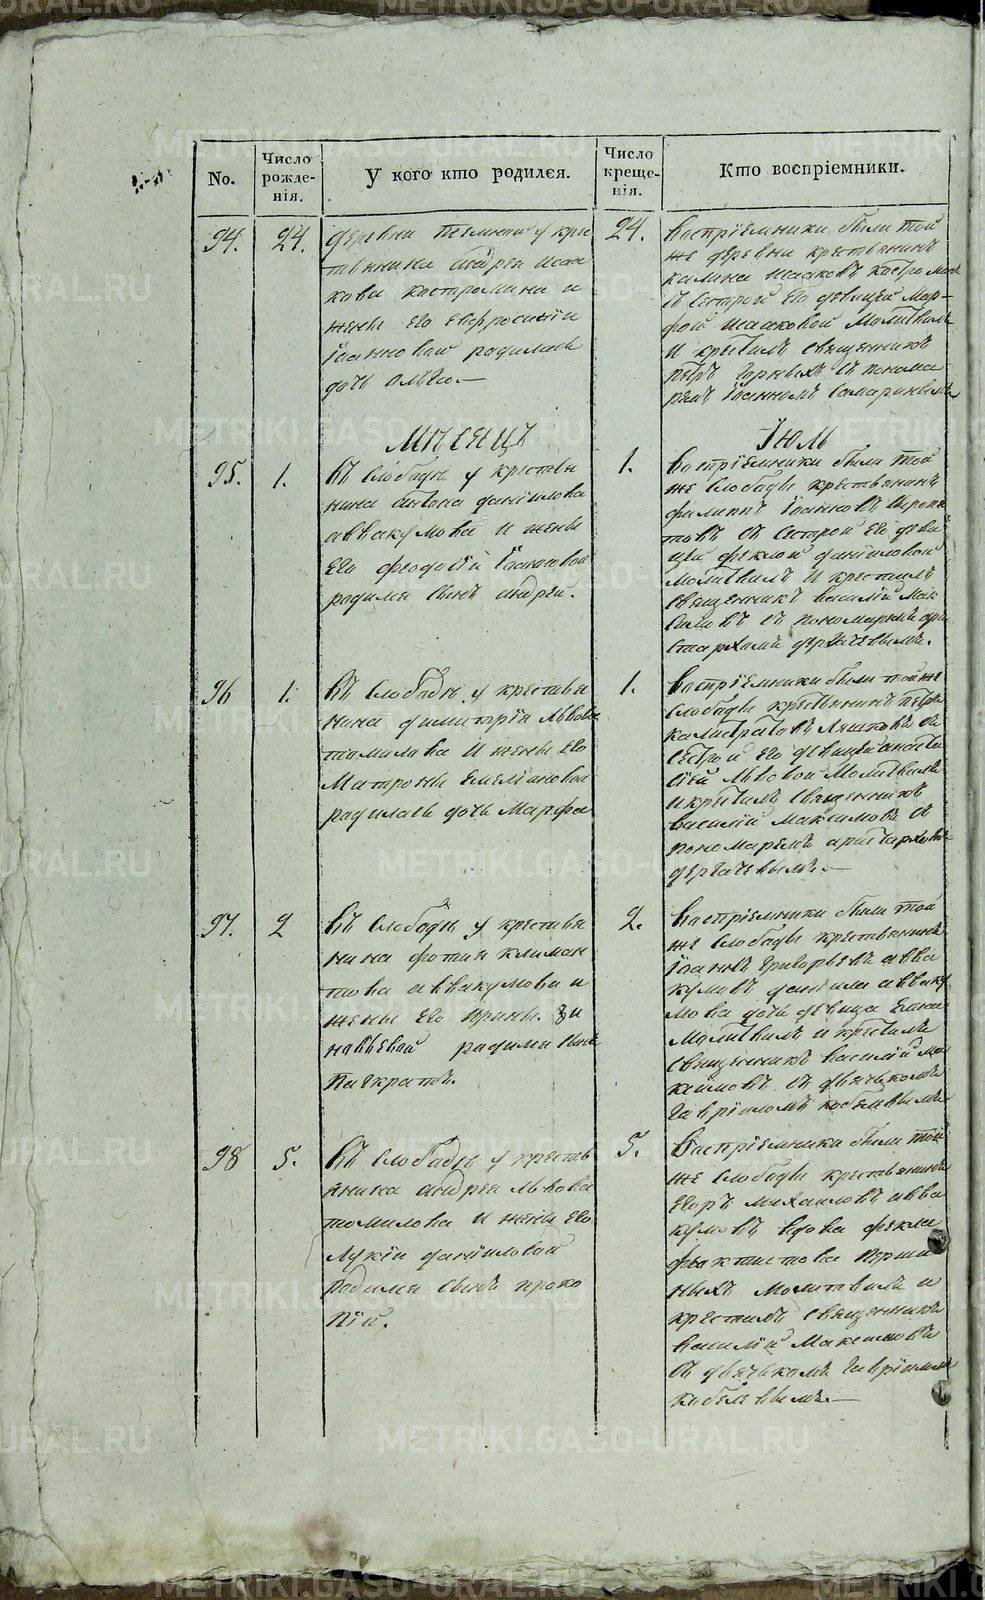 No.
Число рожде- нія.
У кого кто родился.
Число креще- нія.
Кто воспріемники.
94.
24.
деревни
у крес
тьянина Андрея Исаа
кова Костромина и
жены его Евфросиніи
Іоанновой родилась
дочь Ольга.—
24.
Воспріемники были той
же деревни крестьянинъ
Калина Исааковъ Костромин
съ сестрой его девицей Мар-
фой Исааковой Молитвилъ
и крестилъ священникъ
Петръ съ понома
ремъ Іоанномъ Самаринымъ
Месяцъ
Іюль
95.
1.
Въ слободе у крестья
нина Антона Даніилова
Аввакумова и жены
его Феодосіи Іоанновой
родился сынъ Андрей.
1.
Воспріемники были той
же слободы крестьянинъ
Филиппъ Іоанновъ
съ сестрой его деви
цей Феклой Даніиловой
молитвилъ и крестилъ
священникъ Василій Мак
симовъ съ пономаремъ Ари
стархомъ Дергачевымъ.
96
1.
Въ слободе у крестья
нина Димитрія Львова
Томилова и жены его
Матроны Емеліановой
родилась дочь Марфа
1.
Воспріемники были той же
слободы крестьянинъ Петръ
Калистратовъ Ляшковъ съ
сестрой его девицей Анаста
сіей Львовой Молитвилъ
и крестилъ священникъ
Василій Максимовъ съ
пономаремъ Аристархомъ
Дергачевымъ.—
97.
2
Въ слободе у крестья
нина Фотия Климан
това Аввакумова и
жены его Ирины Зи
новьевой родился сынъ
Панкратъ.
2.
Воспріемники были той
же слободы крестьянинъ
Іоаннъ Григорьевъ Авва
кумовъ Даніила Авваку
мова дочь девица Елена
Молитвилъ и крестилъ
священникъ Василій Ма
ксимовъ съ дьячькомъ
Гавріиломъ Кобелевымъ
98
5.
Въ слободе у кресть
янина Андрея Львова
Томилова и жены его
Лукіи Даніиловой
родился сынъ Проко
пій.
5.
Воспріемники были той
же слободы крестьянинъ
Егоръ Михаиловъ Авва
кумовъ вдова Фекла
Феоктистова Верши
ныхъ Молитвилъ и
крестилъ священникъ
Василій Максимовъ
съ дьячькомъ Гавріиломъ
Кобелевымъ.—
METRIKI.GASO-URAL.RU